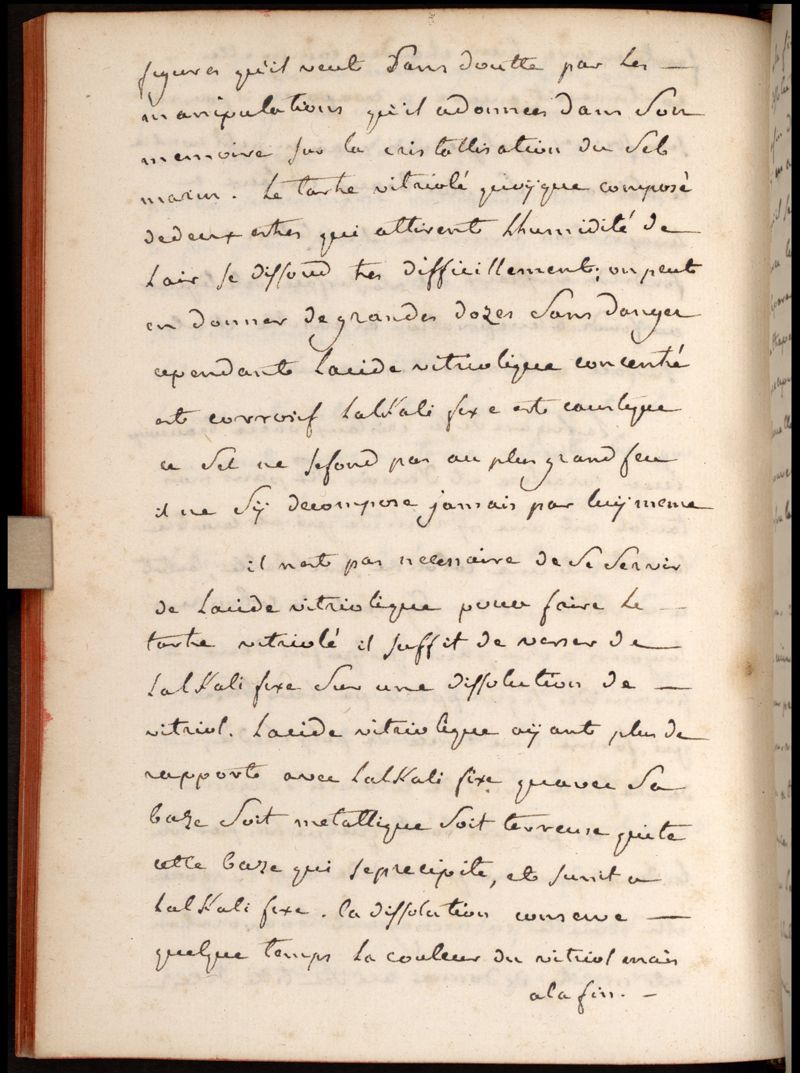 figures qu'il veut Sans doutte par les —
manipulations qu'il adonnees dans Son
memoire sur la cristallisation du Sel
marin. Le tartre vitriolé quoÿque composé
dedeux estres qui attirent Lhumidité de
Lair se dissoud tres difficillement; on peut
en donner de grandes dozes Sans danger
cependant Lacide vitriolique concentré
est corrosif LalKali fixe est caustique
ce Sel ne sefond pas au plus grand feu
il ne Sÿ decompose jamais par luÿ meme
il nest pas necessaire de Se Servir
de Lacide vitriolique pour faire Le —
tartre vitriolé il suffit de verser de
LalKali fixe Sur une dissolution de —
vitriol. Lacide vitriolique aÿant plus de
rapport avec LalKali fixe quavec Sa
baze Soit metallique Soit terreuse quite
cette baze qui seprecipite, et sunit a
LalKali fixe. la dissolution conserve —
quelque temps La couleur du vitriol mais
ala fin. —